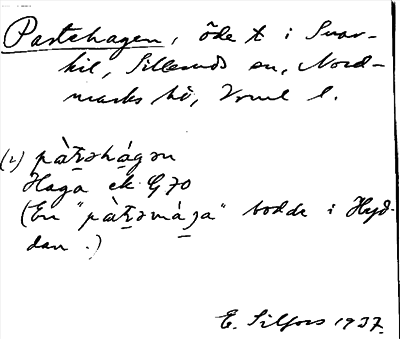 Partehagen, öde t i Svar-
kil, Silleruds sn, Nord-
marks hd, Vrml l.
(1) pàʈəhágən
Haga ek. G 70
(En "pàʈəmája" bodde i Hyd-
dan.)
E. Silfors 1937.